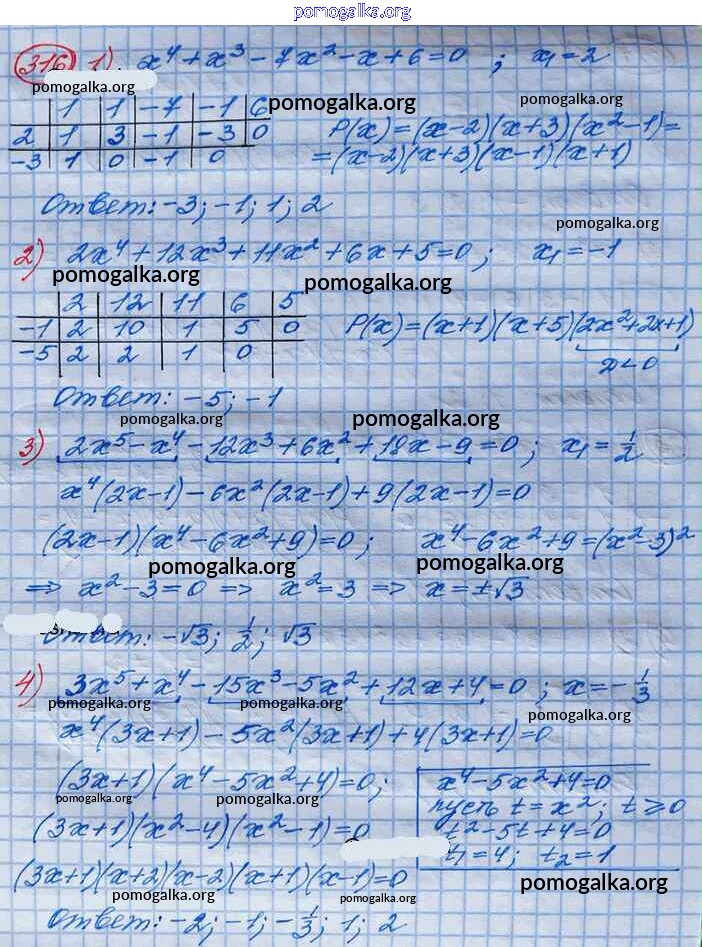 pomogalka.org
316 1) x⁴ + x³ - 7x² - x + 6 = 0 ; x₁ = 2
pomogalka.org
pomogalka.org
pomogalka.org
1 1 -7 -1 6
2 1 3 -1 -3 0
-3 1 0 -1 0
P(x) = (x-2)(x+3)(x²-1) =
= (x-2)(x+3)(x-1)(x+1)
Ответ: -3; -1; 1; 2
pomogalka.org
2) 2x⁴ + 12x³ + 11x² + 6x + 5 = 0 ; x₁ = -1
pomogalka.org
pomogalka.org
2 12 11 6 5
-1 2 10 1 5 0
-5 2 2 1 0
P(x) = (x+1)(x+5)(2x²+2x+1)
D < 0
Ответ: -5; -1
pomogalka.org
pomogalka.org
3) 2x⁵ - x⁴ - 12x³ + 6x² + 18x - 9 = 0 ; x₁ = 1/2
x⁴(2x-1) - 6x²(2x-1) + 9(2x-1) = 0
(2x-1)(x⁴ - 6x² + 9) = 0 ; x⁴ - 6x² + 9 = (x²-3)²
pomogalka.org
pomogalka.org
=> x² - 3 = 0 => x² = 3 => x = ±√3
Ответ: -√3; 1/2; √3
4) 3x⁵ + x⁴ - 15x³ - 5x² + 12x + 4 = 0 ; x = -1/3
pomogalka.org
pomogalka.org
pomogalka.org
x⁴(3x+1) - 5x²(3x+1) + 4(3x+1) = 0
(3x+1)(x⁴ - 5x² + 4) = 0;
pomogalka.org
pomogalka.org
(3x+1)(x²-4)(x²-1) = 0
x⁴ - 5x² + 4 = 0
пусть t = x²; t ≥ 0
t² - 5t + 4 = 0
t₁ = 4; t₂ = 1
(3x+1)(x+2)(x-2)(x+1)(x-1) = 0
pomogalka.org
pomogalka.org
Ответ: -2; -1; -1/3; 1; 2